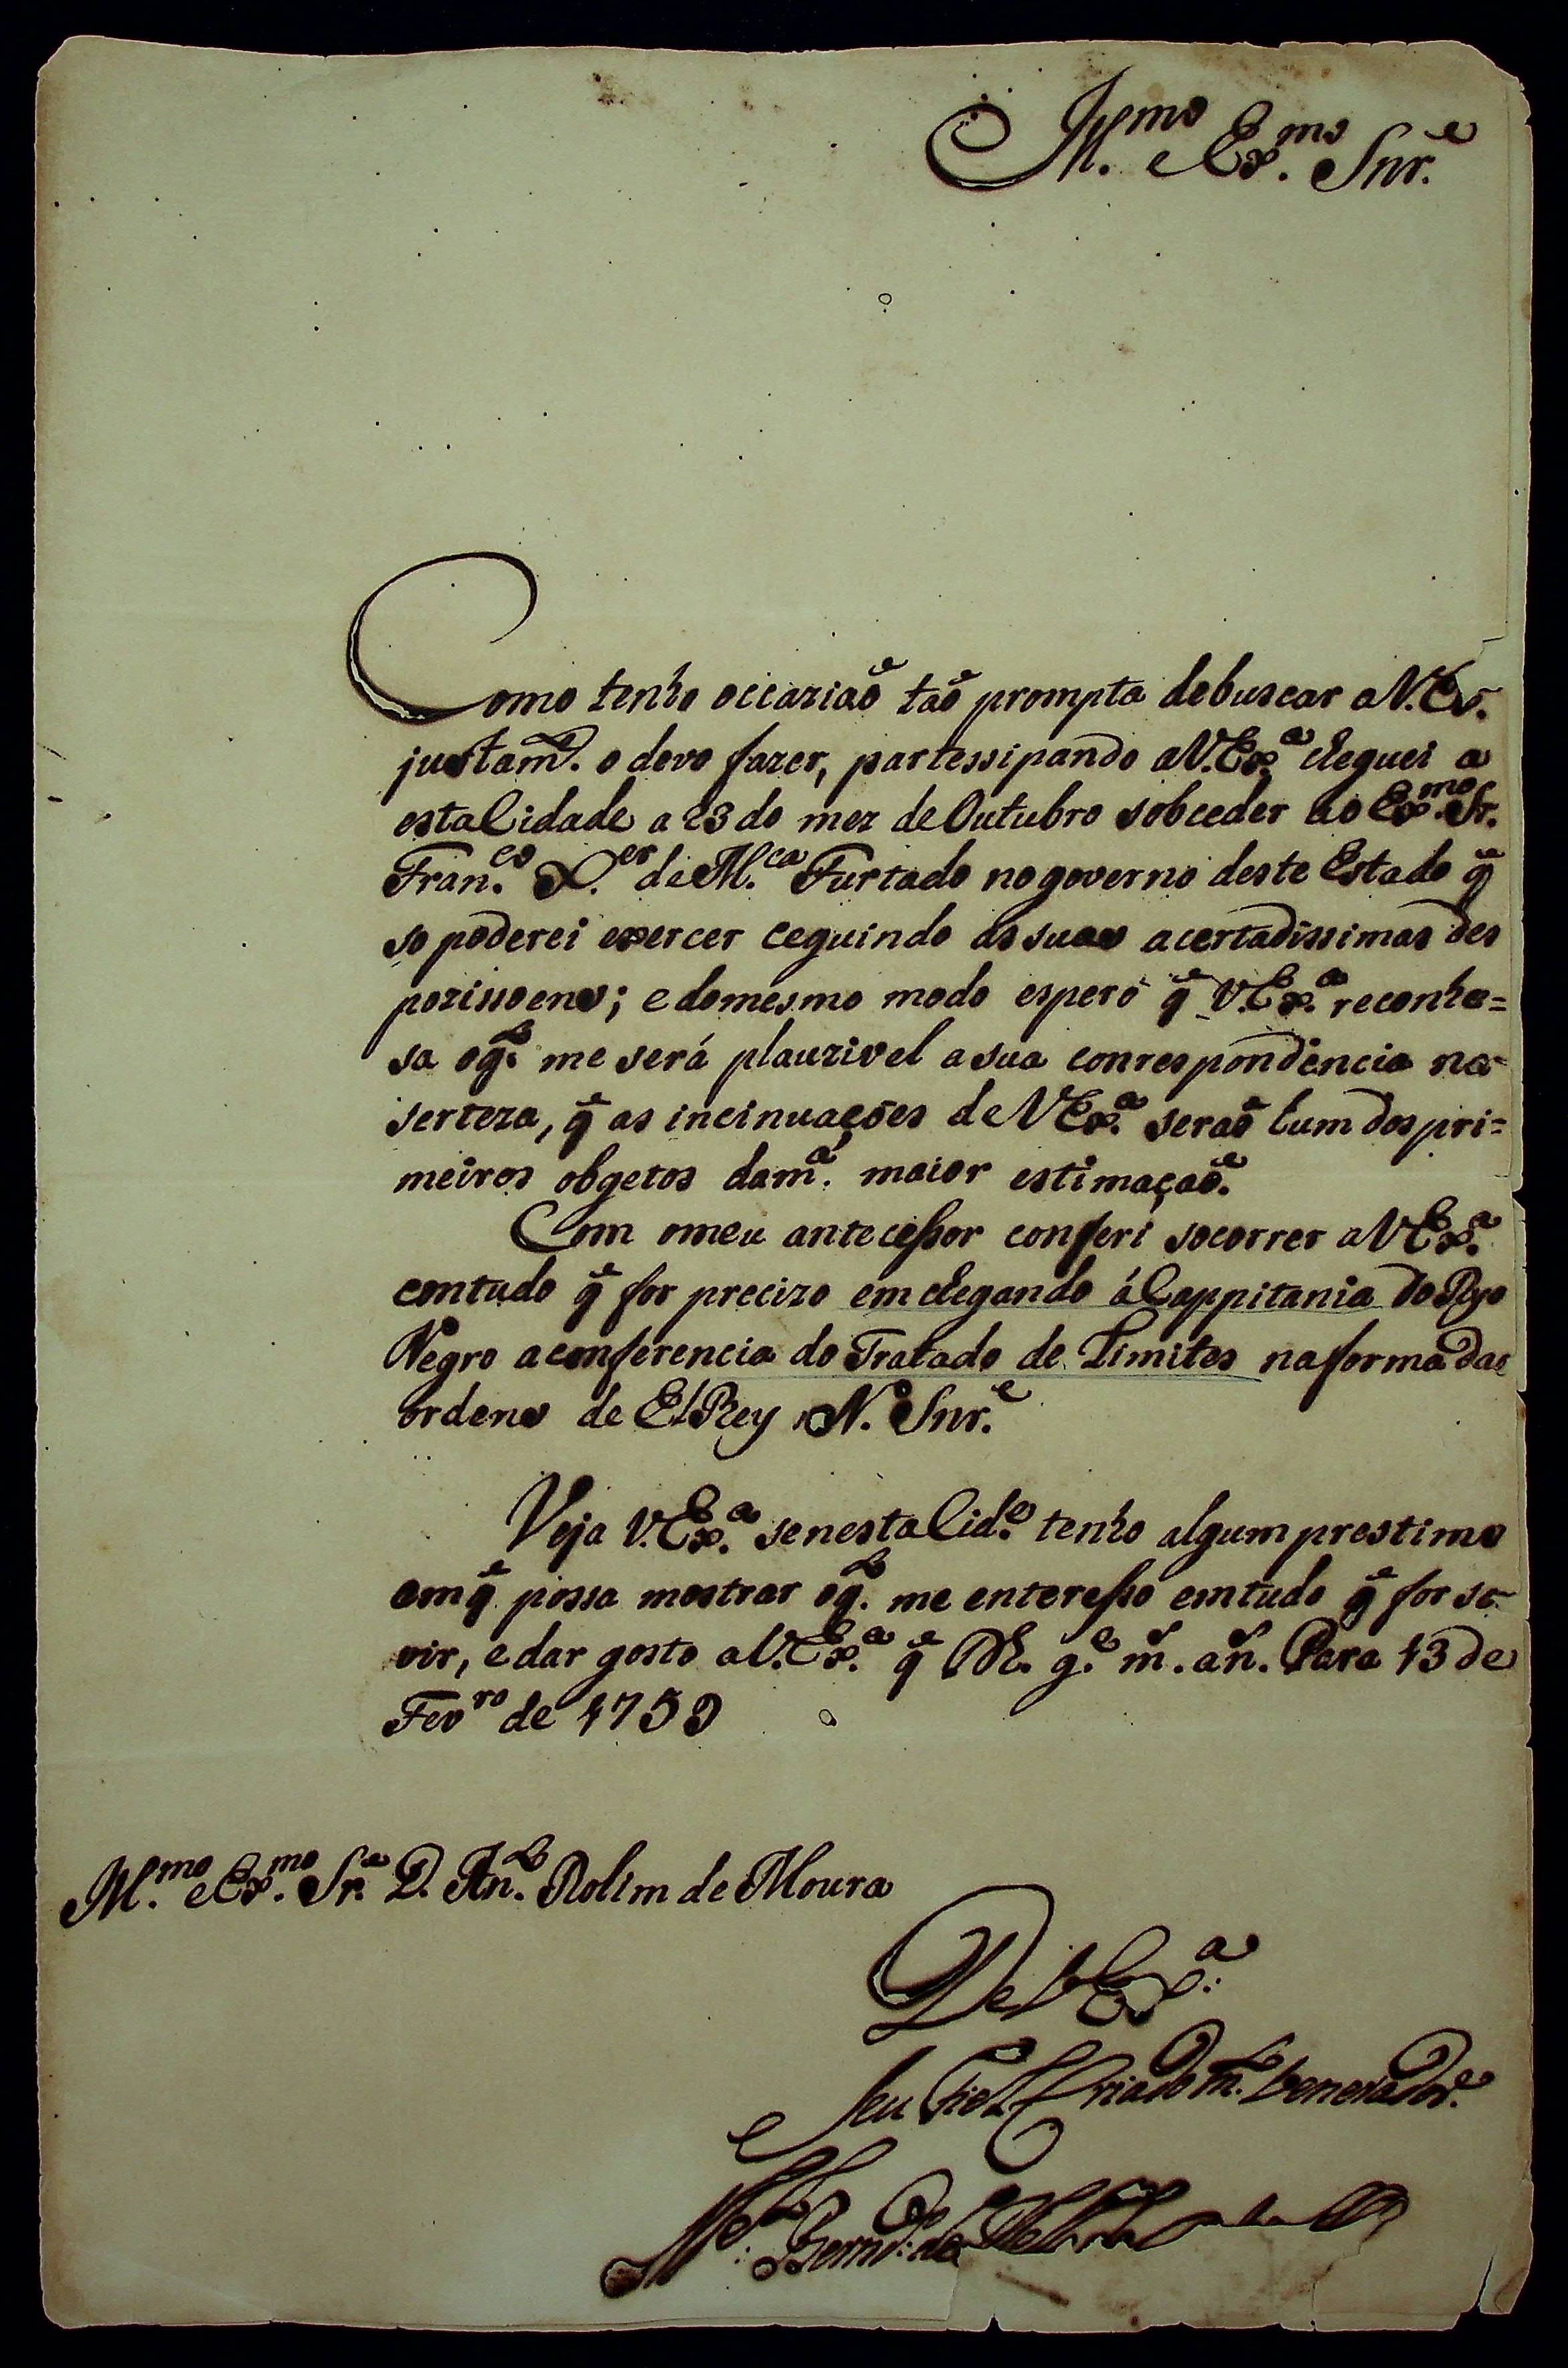 Ill.mo e Ex.mo Snr.e
Como tenho occaziaõ taõ prompta debuscar aV.Ex.
justam.e o devo fazer, partessipando aV.Ex.a cheguei a
esta Cidade a 23 do mez de Outubro sobceder ao Ex.mo Sr.
Fran.co X.er de M.ca Furtado no governo deste Estado q̃
so poderei exercer ceguindo as suas acertadissimas des
pozissoens; e domesmo modo espero q̃ V.Ex.a reconhe=
sa oq.to me será plauzivel a sua conrespondencia na
serteza, q̃ as incinuações de V Ex.a seraõ hum dos pri=
meiros obgetos dam.a maior estimaçaõ.
Com omeu antecessor conferi socorrer aV Ex.a
comtudo q̃ for precizo em chegando á Cappitania do Ryo
Negro aconferencia do Tratado de Limites naforma das
ordens de ElRey N. Snr.e
Veja V.Ex.a senesta Cid.e tenho algum prestimo
emq̃ possa mostrar oq.to me enteresso emtudo q̃ for ser
vir, e dar gosto aV.Ex.a q̃ DE. g.e m. an. Para 13 de
Fev.ro de 1759
Ill.mo e Ex.mo Sr.e D. An.to Rolim de Moura
De V Ex.a
Seu Fiel Criado e m.to Venerador.e
M.el Bern.do de Mello